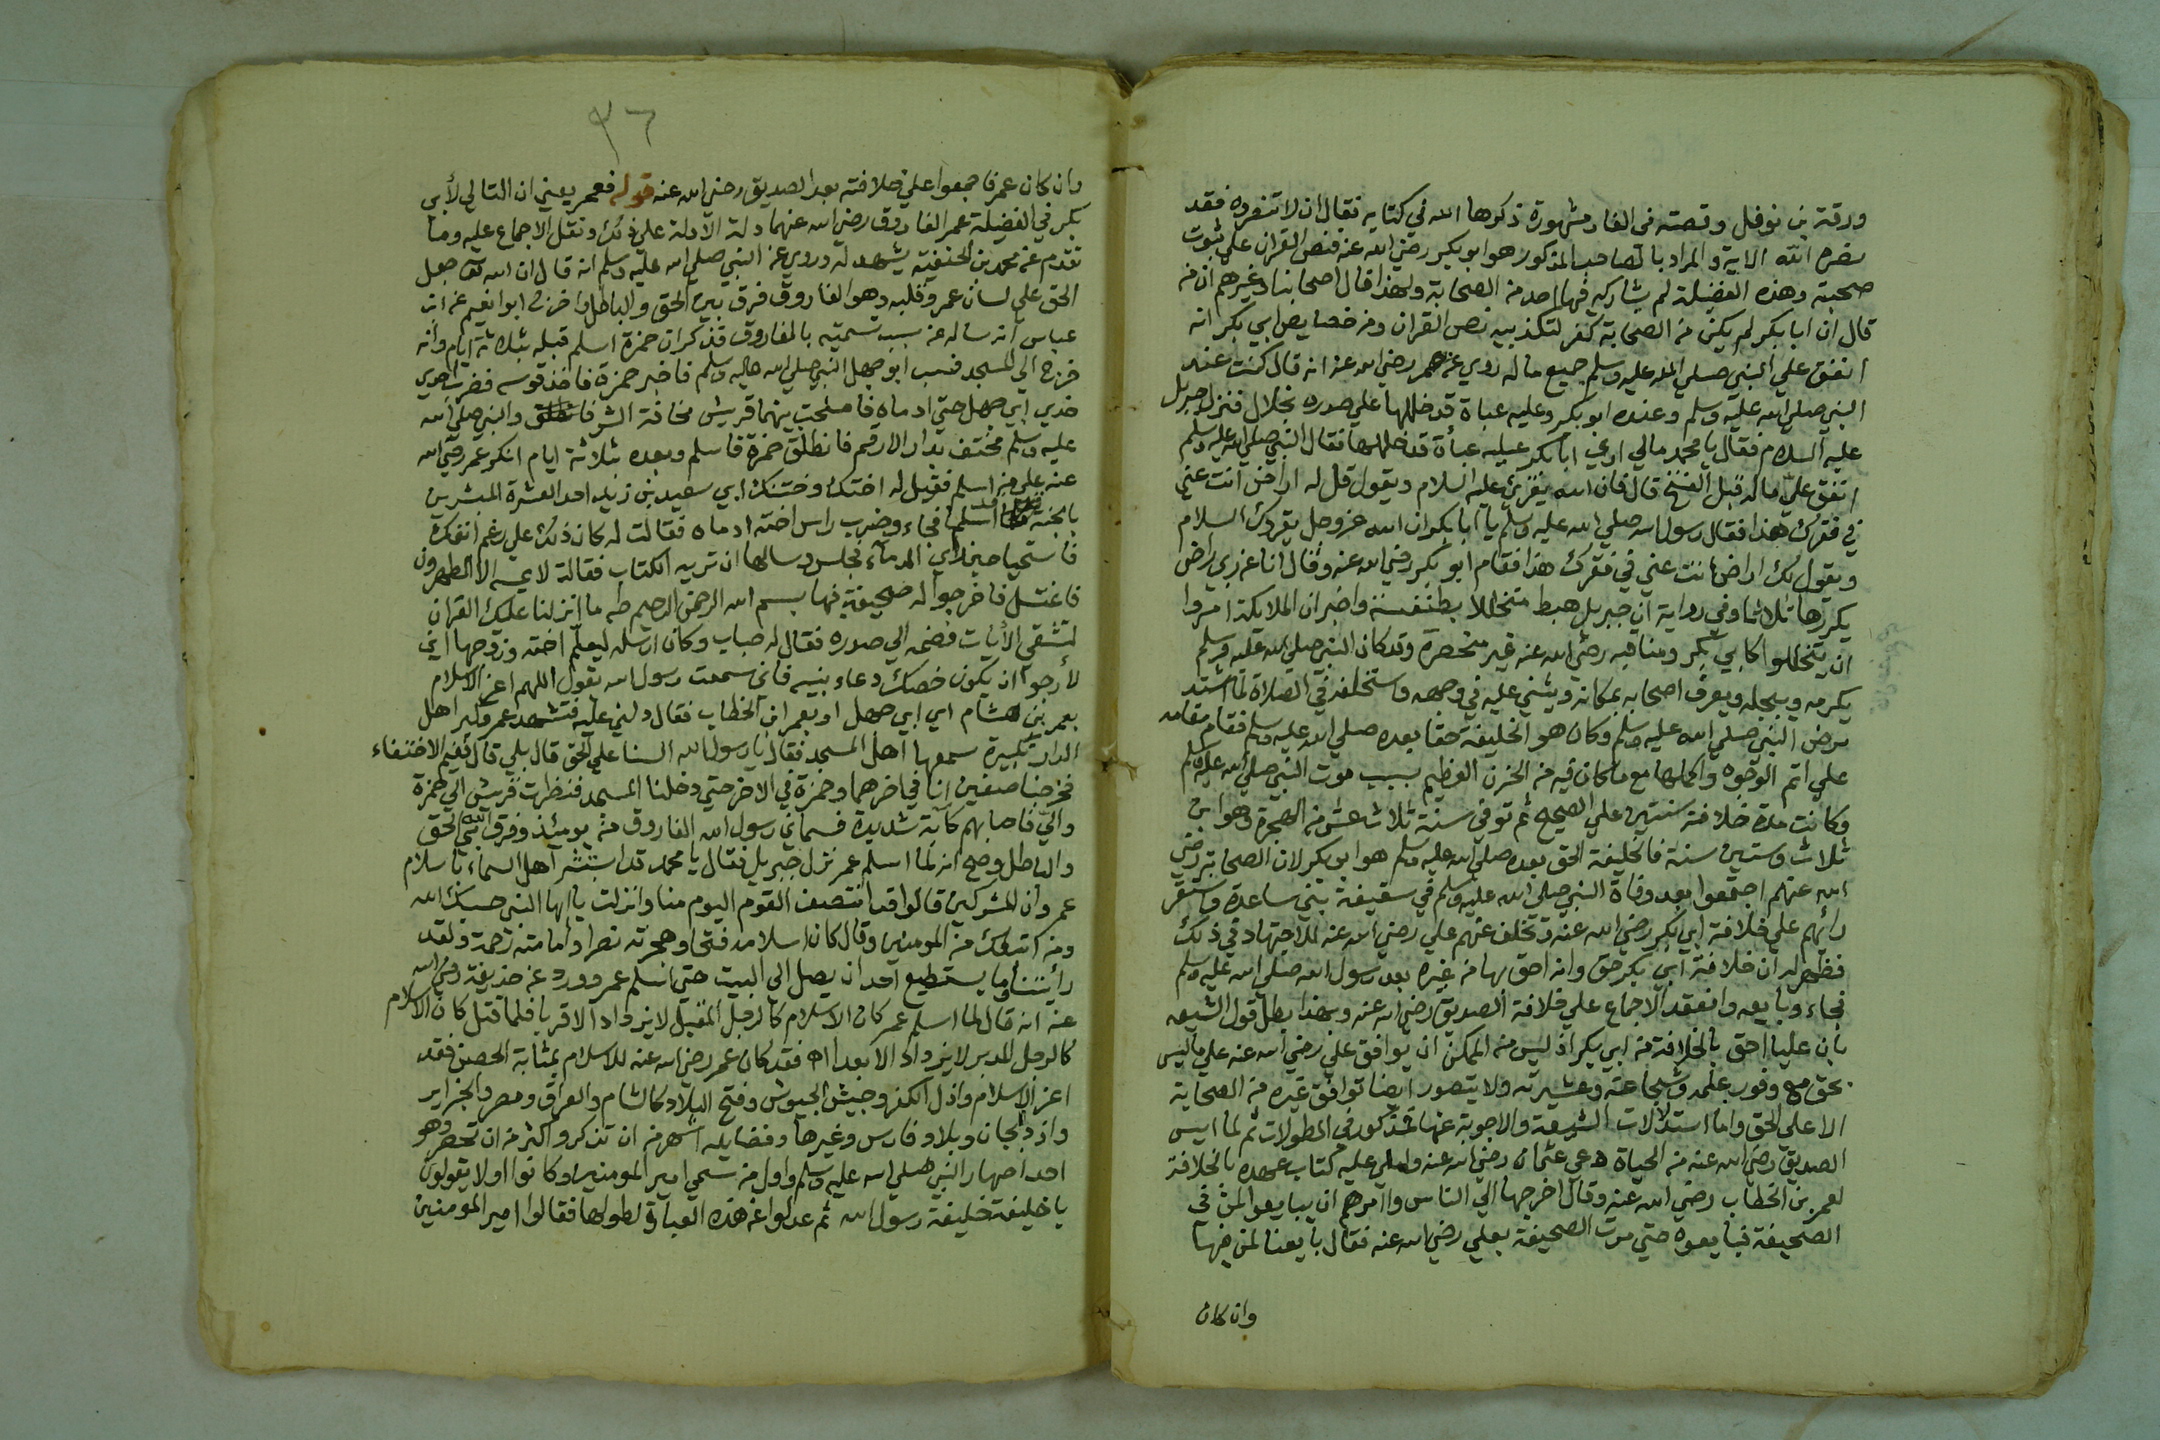 ورقة بن نوفل وقصته في الغار مشهورة ذكرها الله في كتابه فقال ان لا تنصروه فقد
نصره الله الاية والمراد بالصاحب المذكور هو ابو بكر رضي الله عنه فنص القران علي ثبوت
صحبته وهذه الفضيلة لم يشاركه فيها احد من الصحابة ولهذا قال اصحابنا وغيرهم ان من
قال ان ابا بكر لم يكن من الصحابة كفر لتكذيبه نص القران ومن خصايص ابي بكر انه
انفق علي النبي صلي الله عليه وسلم جميع ما له روي عن عمر رضي الله عنه انه قال كنت عند
النبي صلي الله عليه وسلم وعنده ابو بكر وعليه عباة قد خللها علي صدره بخلال فنزل جبريل
عليه السلام فقال يا محمد مالي اري ابا بكر عليه عباة قد خللها فقال النبي صلي الله عليه وسلم
انفق علي ماله قبل الفتح قال فان الله يقرئ عليه السلام ويقول قل له اراض انت عني
في فقرك هذا فقال رسول الله صلي الله عليه وسلم يا ابا بكر ان الله عز وجل يقرئك السلام
ويقول لك اراض انت عني في فقرك هذا فقام ابو بكر رضي الله عنه وقال انا عن ربي راض
يكررها ثلاثا وفي رواية ان جبريل هبط متخللا بطنفسة واخبر ان الملايكة امروا
ان يتخللوا كابي بكر ومناقبه رضي الله عنه غير منحصرة وقد كان النبي صلي الله عليه وسلم
يكرمه ويبجله ويعرف اصحابه بمكانه ويثني عليه في وجهه واستخلفه في الصلاة لما اشتد
مرض النبي صلي الله عليه وسلم وكان هو الخليفة حقا بعده صلي الله عليه وسلم فقام مقامه
علي اتم الوجوه واكملها مع ما كان فيه من الحزن العظيم بسبب موت النبي صلي الله عليه وسلم
وكانت مدة خلافته سنتين علي الصحيح ثم توفي سنة ثلاث عشر من الهجرة وهو ابن
ثلاث وستين سنة فالخليفة الحق بعده صلي الله عليه وسلم هو ابو بكر لان الصحابة رضي
الله عنهم اجتمعوا بعد وفاة النبي صلي الله عليه وسلم في سقيفة بني ساعدة واستقر
رائهم علي خلافة ابي بكر رضي الله عنه وتخلف عنهم علي رضي الله عنه للاجتهاد في ذلك
فظهر له ان خلافة ابي بكر حق وانه احق بها من غيره بعد رسول الله صلي الله عليه وسلم
فجاء وبايعه وانعقد الاجماع علي خلافة الصديق رضي الله عنه وبهذا بطل قول الشيعه
بان عليا احق بالخلافة من ابي بكر اذ ليس من الممكن ان يوافق علي رضي الله عنه علي ما ليس
بحق مع وفور علمه وشجاعته وعشيرته ولا يتصور ايضا توافق غيره من الصحابة
الا علي الحق واما استدلالات الشيعة والاجوبة عنها فمذكور في المطولات ثم لما ايس
الصديق رضي الله عنه من الحياة دعي عثمان رضي الله عنه واملي عليه كتاب عهده بالخلافة
لعمر بن الخطاب رضي الله عنه وقال اخرجها الي الناس وامرهم ان يبايعوا لمن في
الصحيفة فبايعوه حتي مرت الصحيفة بعلي رضي الله عنه فقال بايعنا لمن فيها
وان كان
٣٦
وان كان عمر فاجمعوا علي خلافته بعد الصديق رضي الله عنه قوله فعمر يعني ان التالي لأبي
بكر في الفضيلة عمر الفاروق رضي الله عنهما دلة الادلة علي ذلك ونقل الاجماع عليه وما
تقدم عن محمد بن الحنفية يشهد له وروي عن النبي صلي الله عليه وسلم انه قال ان الله تعا جعل
الحق علي لسان عمر وقلبه وهو الفاروق فرق بين الحق والباطل واخرج ابو نعيم عن ابن
عباس انه ساله عن سبب تسميته بالفاروق فذكر ان حمزة اسلم قبله بثلاثة ايام وأنه
خرج الي المسجد فسب ابو جهل النبي صلي الله عليه وسلم فاخبر حمزة فاخذ قوسه فضرب احدي
خدي ابي جهل حتي ادماه فاصلحت بينهما قريش مخافة الشر والنبي صلي الله
عليه وسلم مختف بدار الارقم فانطلق حمزة فاسلم وبعده بثلاثة ايام انكر عمر رضي الله
عنه علي من اسلم فقيل له اختك وختنك ابي سعيد بن زيد احد العشرة المبشرين
بالجنة قد اسلما فجاء وضرب راس اخته ادماه فقالت له كان ذلك علي رغم انفك
فاستحيا حين راي الدماء فجلس وسالها ان تريه الكتاب فقالة لا يمسه الا المطهرون
فاغتسل فاخرجوا له صحيفة فيها بسم الله الرحمن الرحيم طه ما انزلنا عليك القران
لتشقي الأيات فضمه الي صدره فقال له خباب وكان ارسله ليعلم اخته وزوجها اني
لأرجوا ان يكون خصك دعاء نبيه فاني سمعت رسول الله يقول اللهم اعز الاسلام
بعمرو بن هشام اي ابي جهل او بعمر ابن الخطاب فقال دلني عليه فتشهد عمر فكبر اهل
الدار تكبيرة سمعها اهل المسجد فقال يا رسول الله السنا علي الحق قال بلي قال ففيم الاختفاء
فخرجنا صفين انا في اخرهما وحمزة في الاخر حتي دخلنا المسجد فنظرت قريش الي حمزة
والي فاصابهم كآبة شديدة فسماني رسول الله الفاروق من يومئذ وفرق الله بين الحق
والباطل وصح انه لما اسلم عمر نزل جبريل فقال يا محمد قد استبشر اهل السماء باسلام
عمر وان المشركين قالوا قد انتصف القوم اليوم منا وانزلت يا ايها النبي حسبك الله
ومن اتبعك من المومنين وقال كان اسلامه فتحا وهجرته نصرا وامامته رحمة ولقد
رأيتنا وما يستطيع احد ان يصل الي البيت حتي اسلم عمر وورد عن حذيفة رضي الله
عنه انه قال لما اسلم عمر كان الاسلام كالرجل المقبل لا يزداد الا قربا فلما قتل كان الاسلام
كالرجل المدبر لا يزداد الا بعدا اه فقد كان عمر رضي الله عنه للاسلام بمثابة الحصن فقد
اعز الاسلام واذل الكفر وجيش الجيوش وفتح البلاد كالشام والعراق ومصر والجزاير
واذربيجان وبلاد فارس وغيرها وفضايله اشهر من ان تذكر واكثر من ان تحصر وهو
احد اصهار النبي صلي الله عليه وسلم واول من سمي امير المومنين وكانوا اولا يقولون
يا خليفة خليفة رسول الله ثم عدلوا عن هذه العبارة لطولها فقالوا امير المومنين